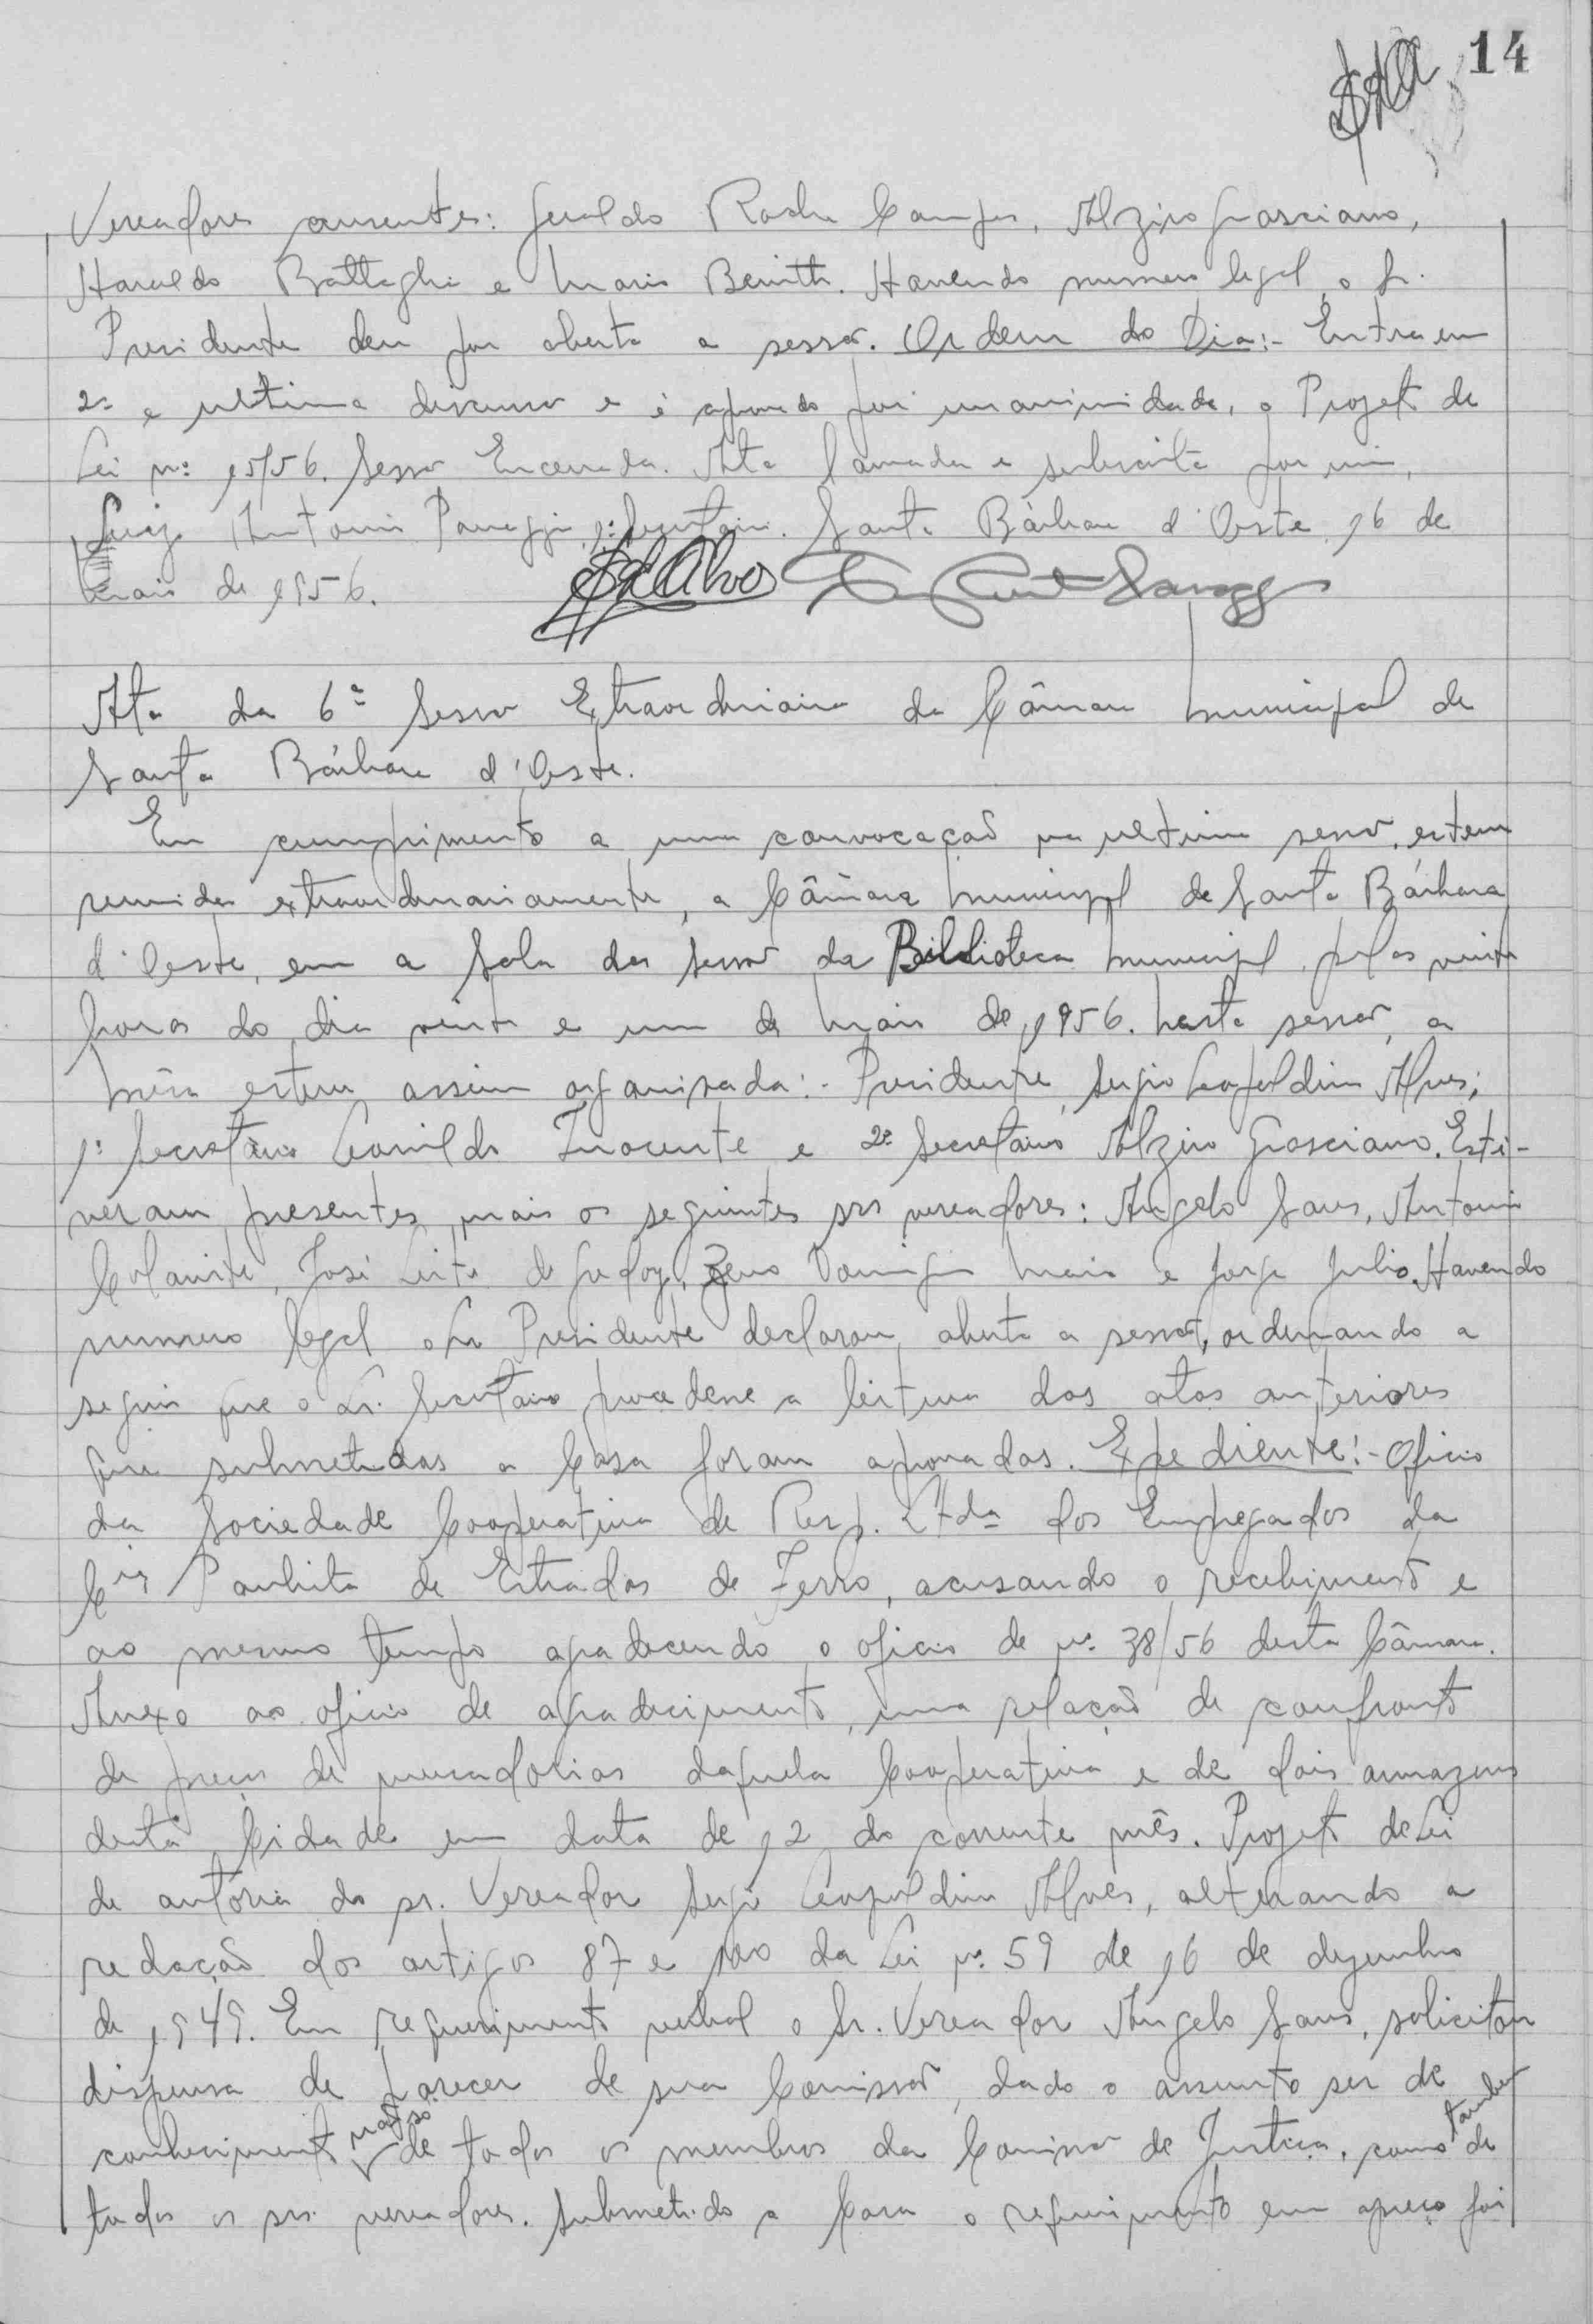 14
Vereadores ausentes: Geraldo Rocha Campos, Alziro Grasciano,
Haraldo Battaglia e Mario Benith. Havendo numero legal, o Sr.
Presidente deu por aberta a sessão. Ordem do Dia:- Entra em
2ª e ultima discussão e é aprovado por unanimidade, o Projeto de
Lei nº 15/56. Sessão Encerrada. Ata lavrada e subscrita por mim,
Luiz Antonio Panaggio 1º Secretario. Santa Bárbara d'Oeste 16 de
Maio de 1956.
Ata da 6ª Sessão Extraordinaria da Câmara Municipal de
Santa Bárbara d'Oeste.
Em cumprimento a uma convocação na ultima sessão, esteve
reunida extraordinariamente, a Câmara Municipal de Santa Bárbara
d'Oeste, em a Sala das Sessões da Biblioteca Municipal pelas vinte
horas do dia vinte e um de Maio de 1956. Nesta sessão, a
Mêsa esteve assim organisada:- Presidente, Sergio Leopoldino Alves;
1º Secretário Leonildo Inocente e 2º Secretário Alziro Grasciano. Esti-
veram presentes mais os seguintes srs vereadores: Angelo Sans, Antonio
José Leite de Godoy, Zeno Domingos Maia e Jorge Julio. Havendo
numero legal o Sr Presidente declarou aberta a sessão, ordenando a
seguir que o Sr. Secretário procedesse a leitura das atas anteriores
que submetidas a Casa foram aprovadas. Expediente:- Oficio
da Sociedade Cooperativa de Resp. Ltda dos Empregados da
Cia Paulista de Estradas de Ferro, acusando o recebimento e
ao mesmo tempo agradecendo o oficio de nº 38/56 desta Câmara.
Anexo ao oficio de agradecimento, uma relação de confronto
de preços de mercadorias daquela Cooperativa e de dois armazens
desta Cidade em data de 12 do corrente mês. Projeto de Lei
de autória do sr. Vereador Sergio Leopoldino Alves, alterando a
redação dos artigos 87 e 100 da Lei nº 59 de 16 de dezembro
de 1949. Em requerimento verbal o Sr. Vereador Angelo Sans, solicitou
dispensa de parecer de sua Comissão, dado o assunto ser de
conhecimento não só de todos os membros da Comissão de Justiça, como tambem de
todos os srs. vereadores. Submetido a Casa o requerimento em apreço foi